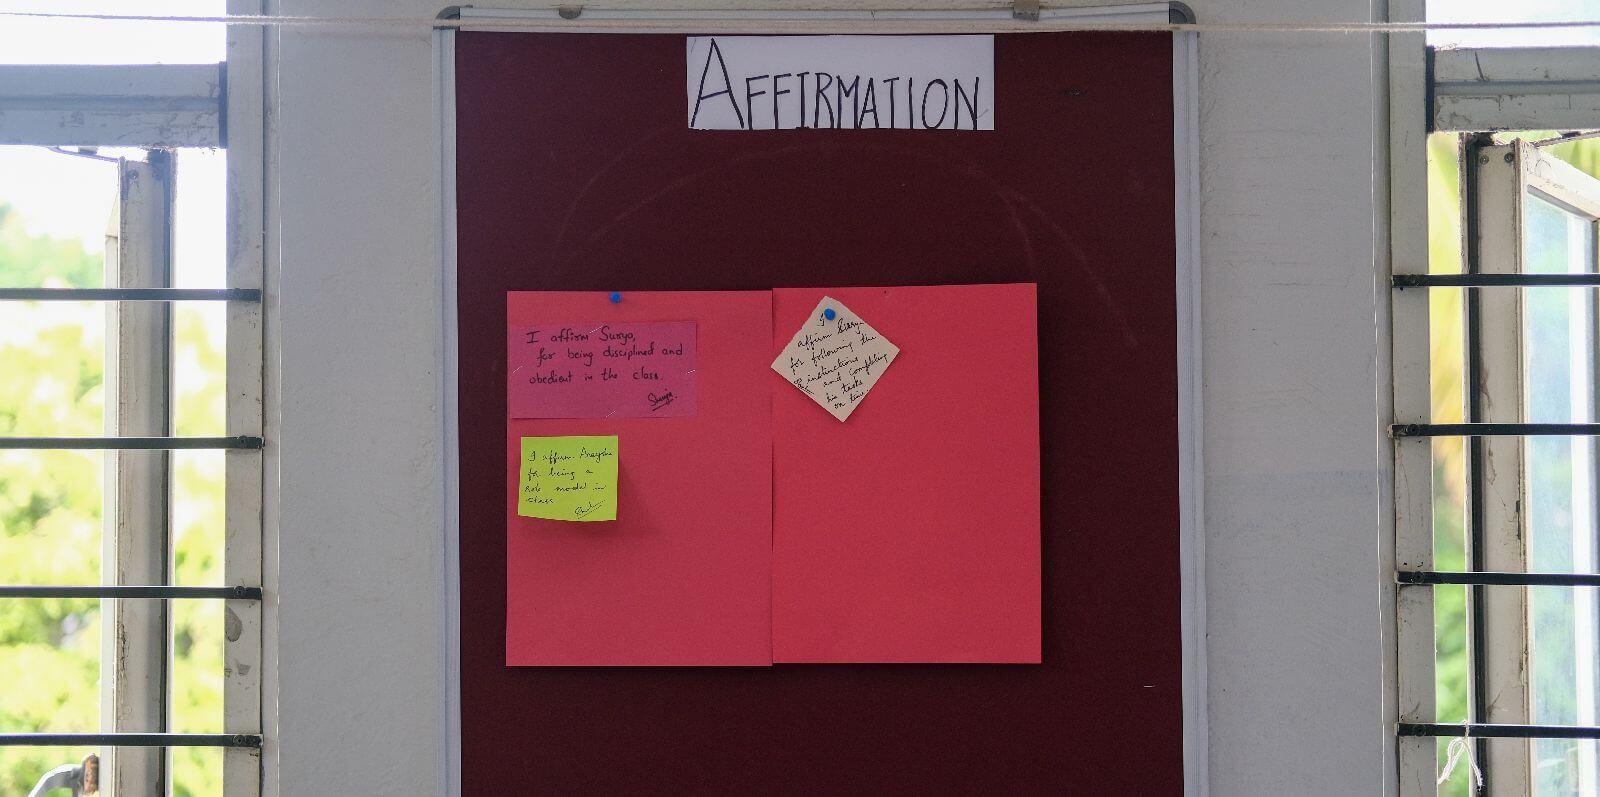 AFFIRMATION
I affirm Surya,
for being disciplined and
obedient in the class.
I affirm
for being a
role model in
class
I
affirm Surya
for following the
instructions
and completing
his tasks
on time